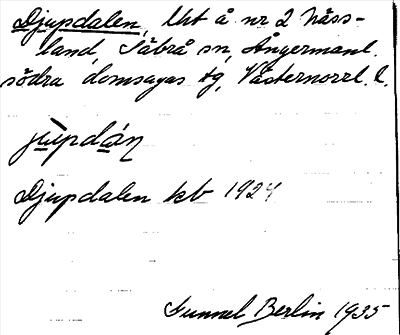 Djupdalen, lht å nr 2 Näss-
land, Säbrå sn, Ångermanl.
södra domsagas tg, Västernorrl. l.
jùpdán
Djupdalen kb 1924
Gunnel Berlin 1935